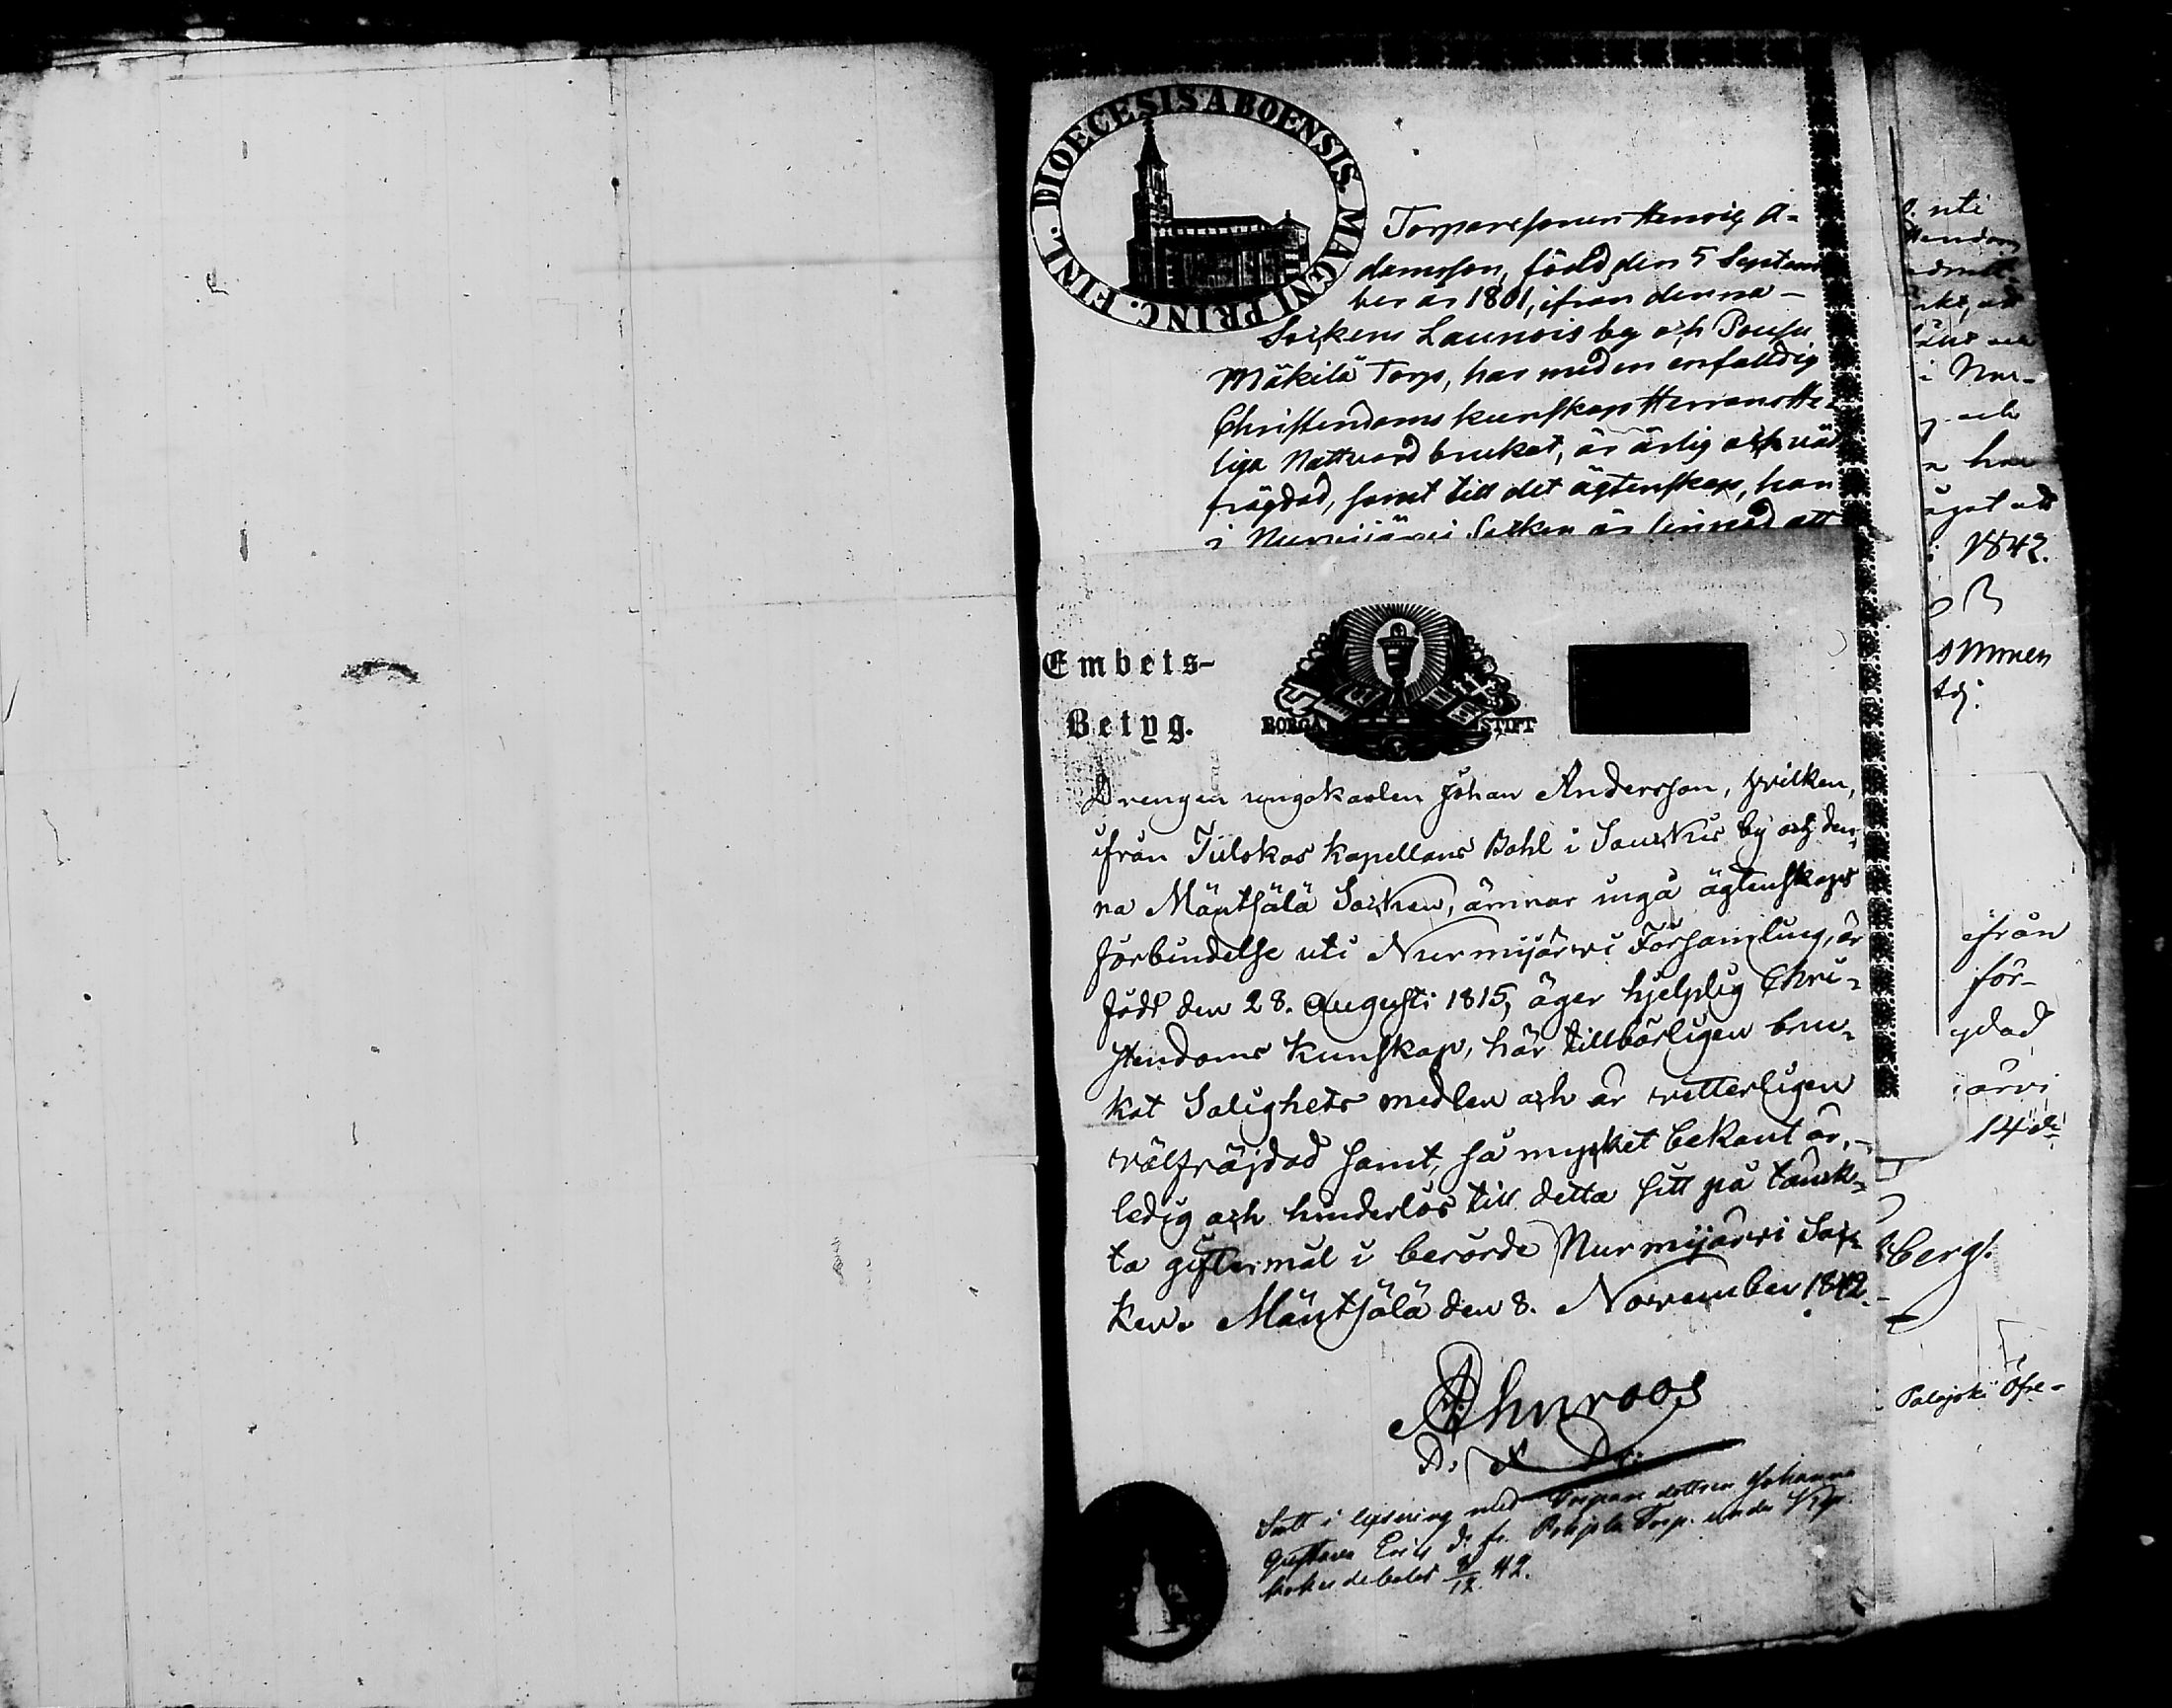 DIOECESIS ABOENSIS. MAGNI PRINC. FINL.
Torparesonen Henric A-
damsson, född den 5 Septem
ber år 1801, ifrån denna
Sockens Launois by och
Mäkilä Torp, har med en enfalldig
Christendoms kunskap Herrans He-
liga Nattvard brukat, är ärlig och väl
frägdad, samt till det ägtenskap, han
i Nurmijärvi Socken är sinnad att
Embets-
Betyg.
BORGÅ STIFT
Drengen ungakarlen Johan Andersson, hvilken,
ifrån Kapellans Bohl i by och den-
na Mäntsälä Socken, ämnar ingå ägtenskaps
förbindelse uti Nurmijärvi Församling, är
född den 28. Augusti 1815, äger hjelplig Chri-
stendoms Kunskap, har tillbörligen bru-
kat Salighets medlen och är vitterligen
välfräjdad samt, så mycket bekant är,
ledig och hinderlös till detta sitt på tänk-
ta giftermål i berörde Nurmijärvi Soc-
ken. Mäntsälä den 8. November 1842.
Ahnroos
Satt i lysning med Torpare dottren Johanna
Gustava Erics d. fr. Torp under
42.
uti
1842.
ifrån
för-
gdad
järvi
14 de
berg.
Palojoki Öfre-